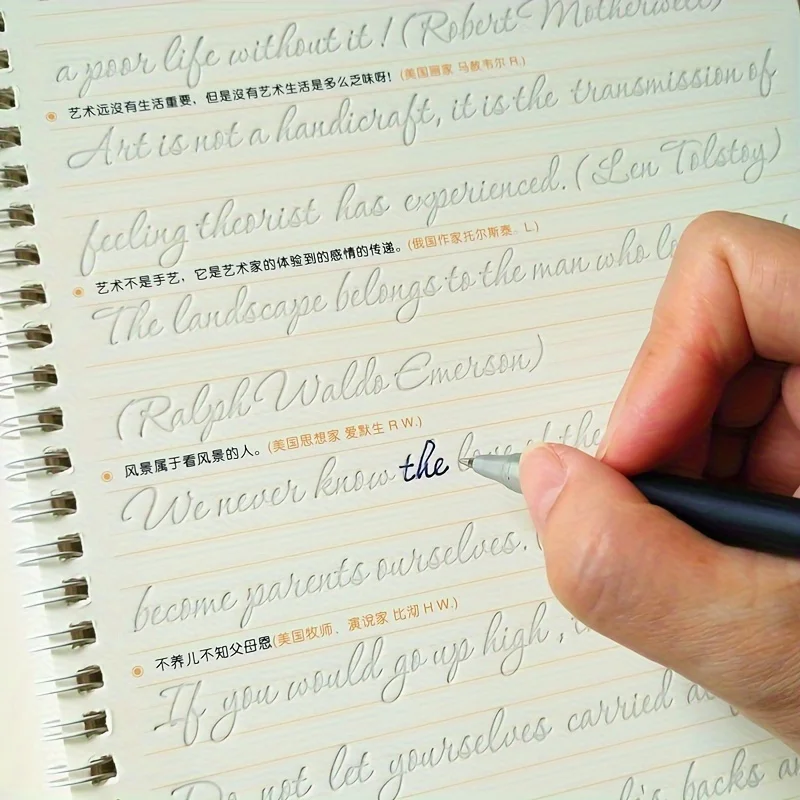 a poor life without it! (Robert Motherwell)
艺术远没有生活重要，但是没有艺术生活是多么乏味呀！(美国画家 马瑟韦尔 R.)
Art is not a handicraft, it is the transmission of
feeling theorist has experienced. (Len Tolstoy)
艺术不是手艺，它是艺术家的体验到的感情的传递。(俄国作家托尔斯泰 L.)
The landscape belongs to the man who
(Ralph Waldo Emerson)
风景属于看风景的人。(美国思想家 爱默生 R W.)
We never know the love of the
become parents ourselves. (
不养儿不知父母恩(美国牧师、演说家 比沏 H W.)
If you would go up high,
Do not let yourselves carried
backs